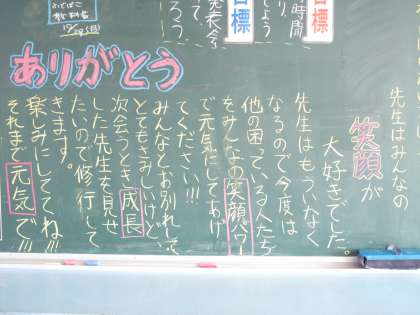 目標
時間
目標
発表会
ふでばこ
教科書
ありがとう
先生はみんなの
笑顔が
大好きでした。
先生はもういなく
なるので今度は
他の困っている人たち
をみんなの笑顔パワー
で元気にしてあげ
てください!!!
みんなとお別れして
とてもさみしいけど、
次会うとき成長
した先生を見せ
たいので修行して
きます。
楽しみにしててね!!!
それまで元気で!!